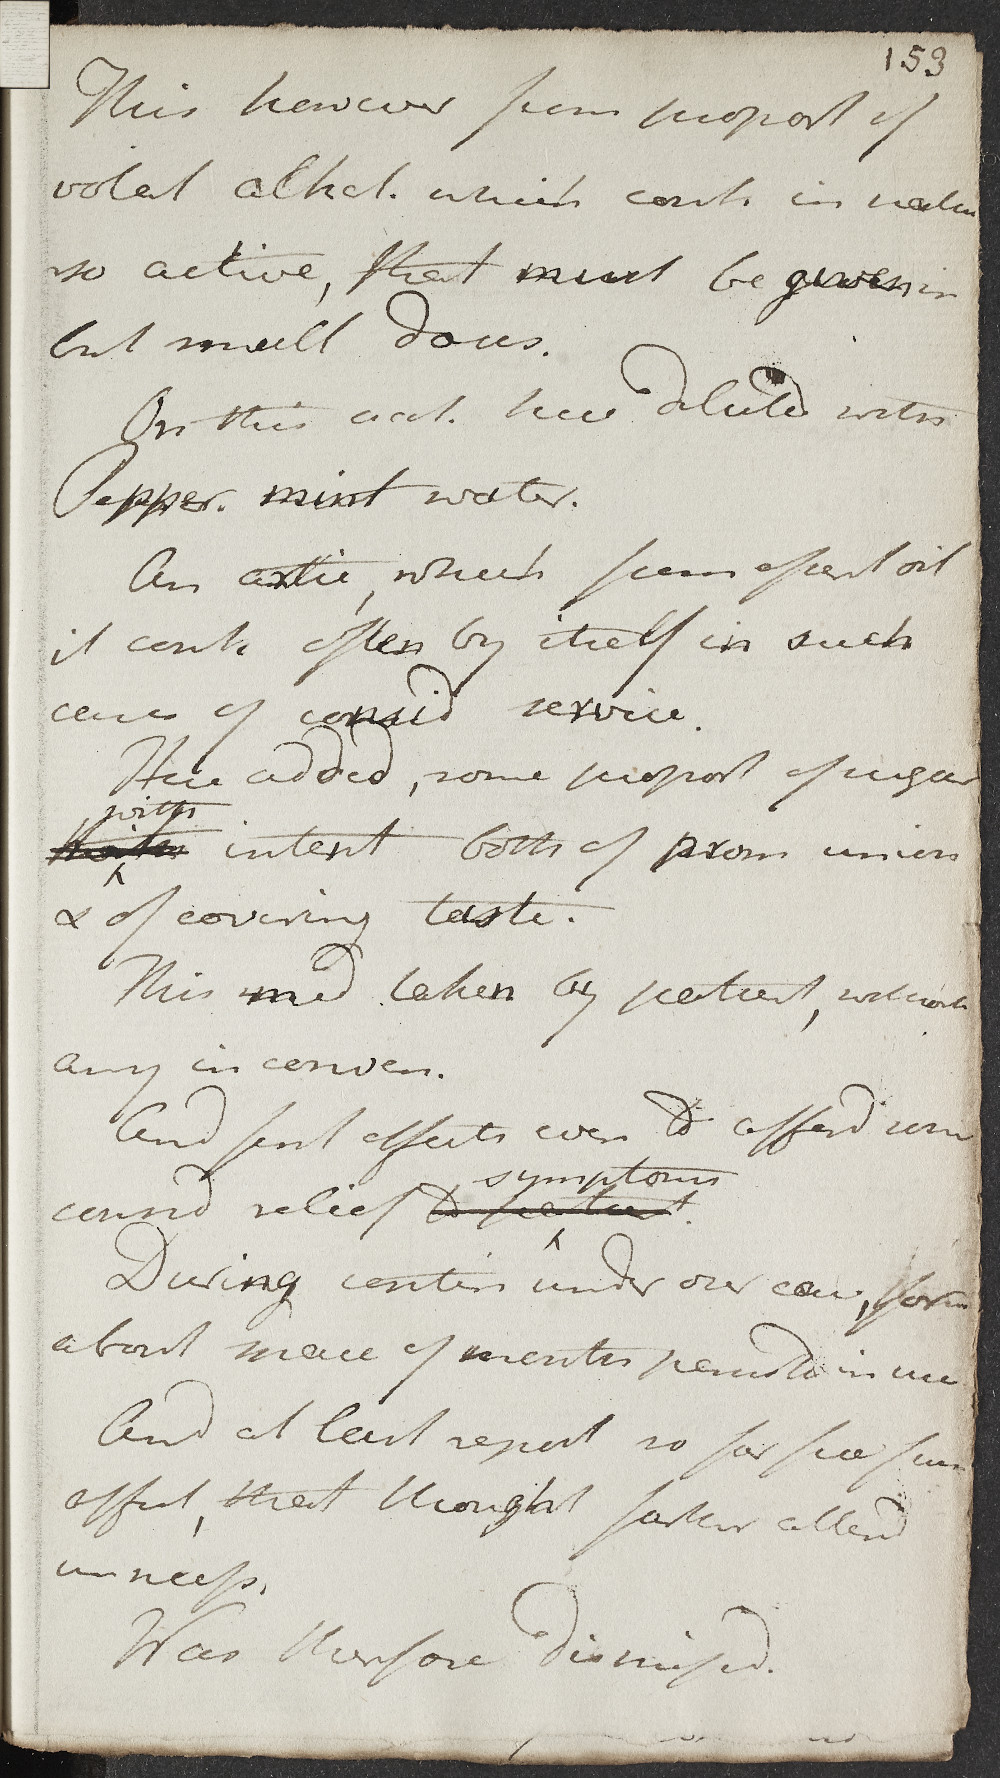 153
This however from proport of
volat alkal. which cont. in natur
so active, that must be given in
but small doses.
On this acct. here diluted with
Pepper. mint water.
An artic, which from essent oil
it cont. often by itself in such
cases of consid service.
Here added, some proport of sugar
with
intent both of prom union
& of covering taste.
This med taken by patient, without
any inconven.
And first effects even to afford some
consid relief
symptoms
During contin under our care,
about space of months persisted in use
And at last report so far free from
affect, that thought farther attend
unness.
Was therfore dismissed.